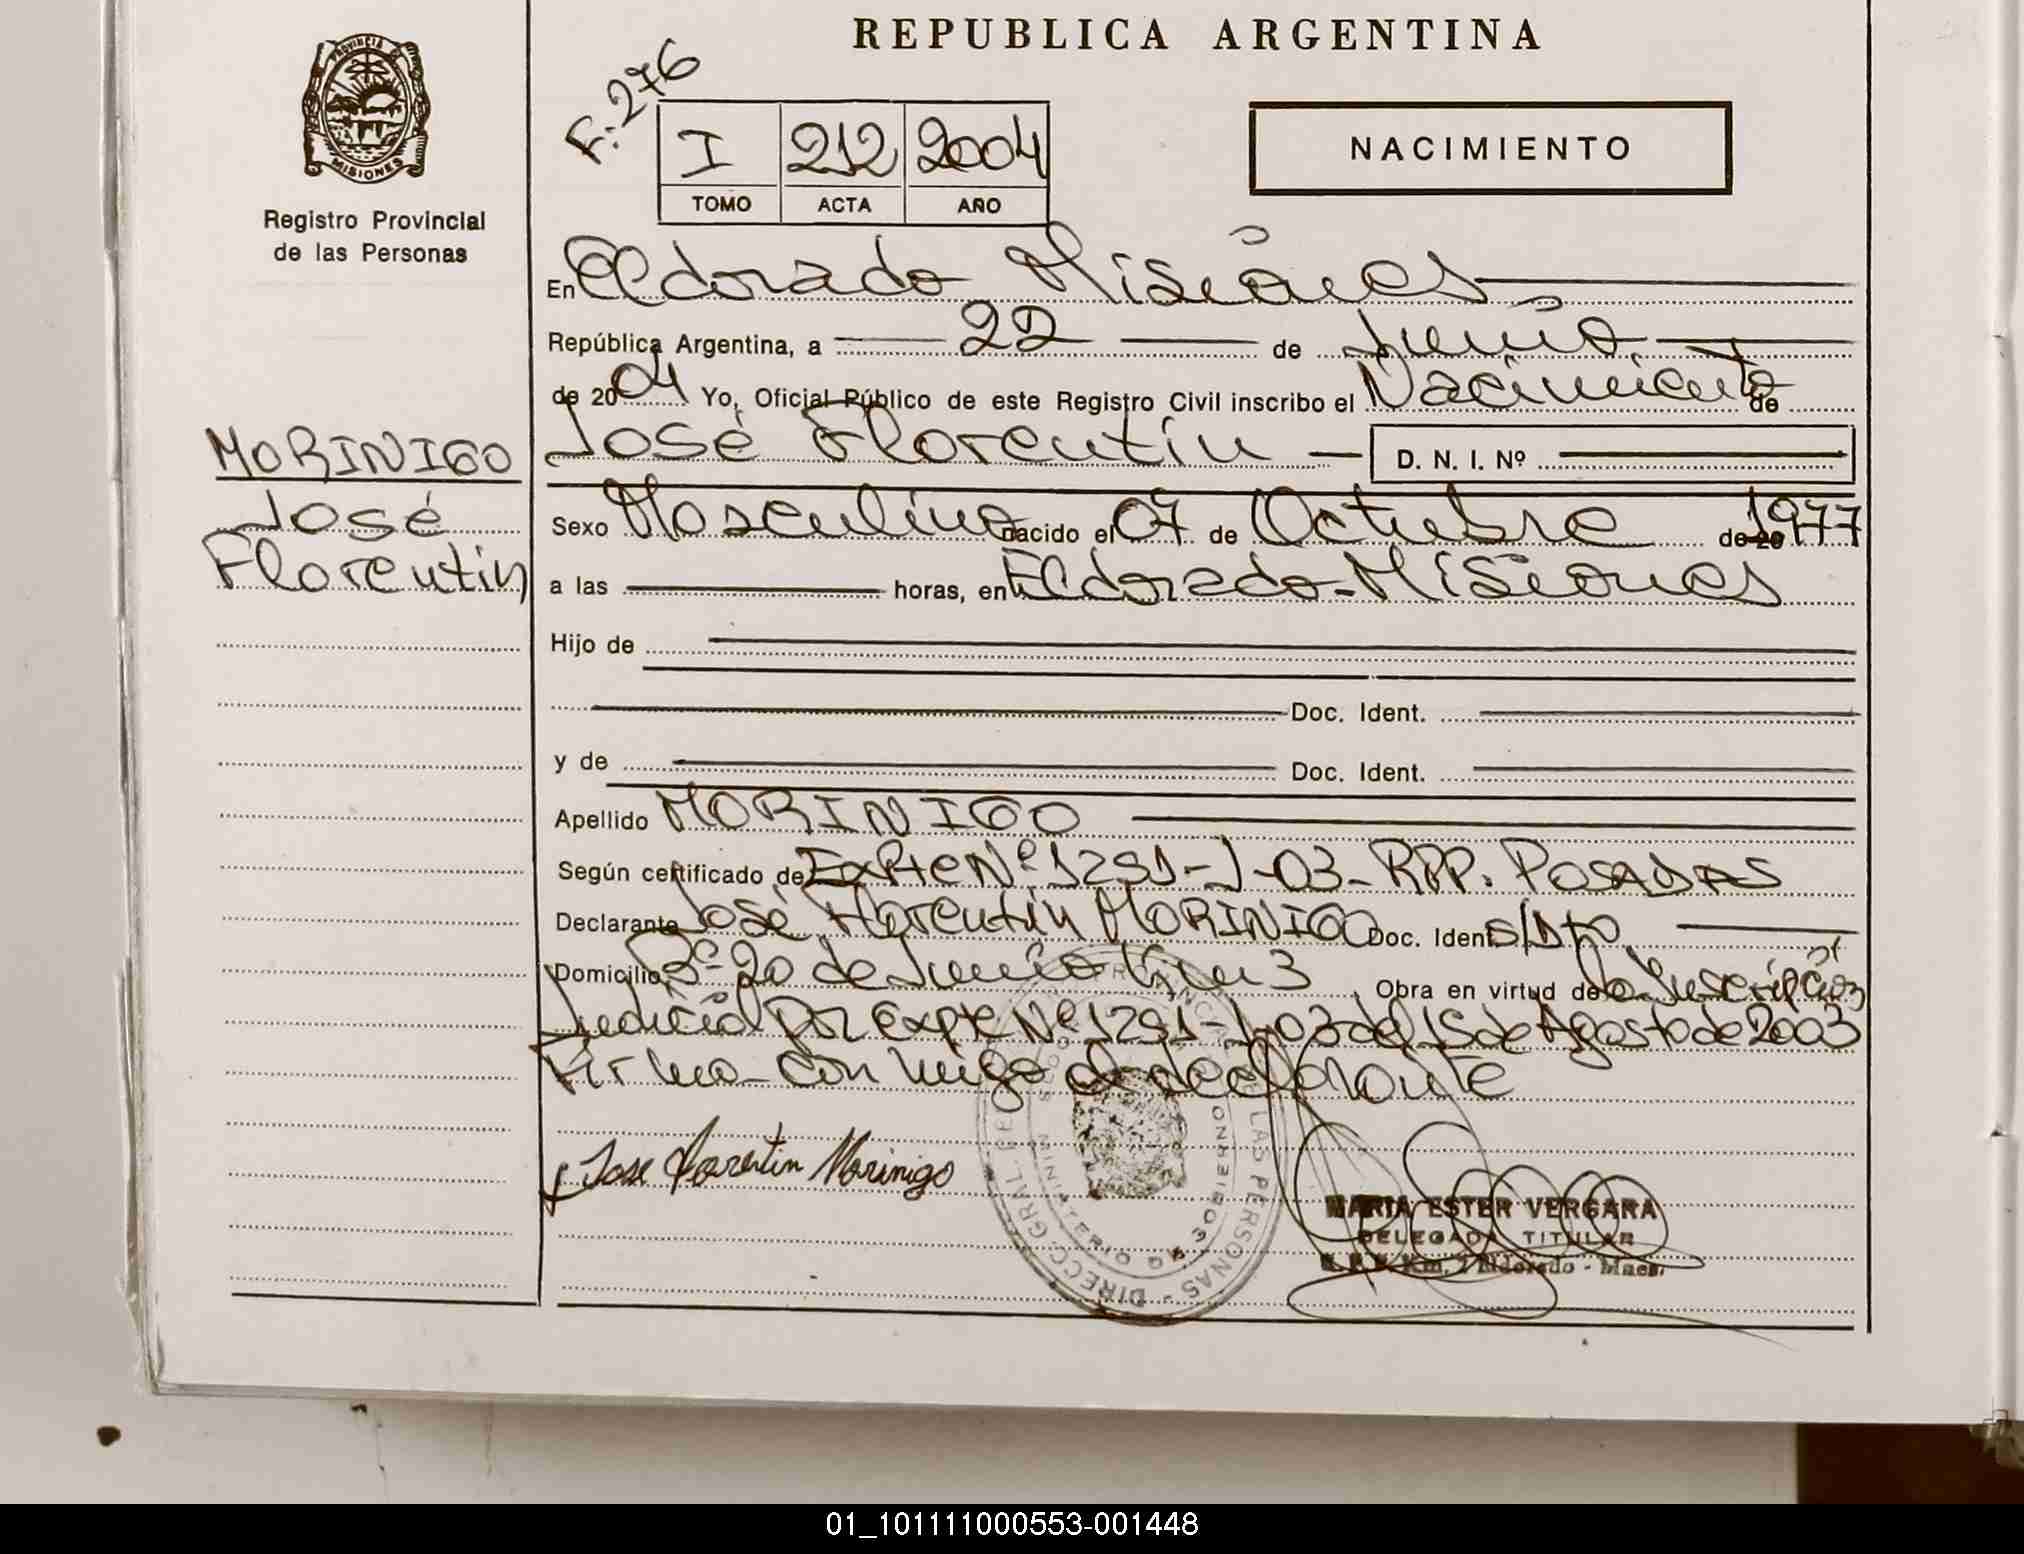 REPUBLICA ARGENTINA
PROVINCIA DE
MISIONES
Registro Provincial
de las Personas
F: 276
I 212 2004
TOMO ACTA AÑO
NACIMIENTO
En Eldorado Misiones
República Argentina, a 22 de Junio
de 2004 Yo, Oficial Público de este Registro Civil inscribo el Nacimiento de
José Florentin D. N. I. Nº
MORINIGO
José
Florentin
Sexo Masculino nacido el 07 de Octubre de 20 1977
a las horas, en Eldorado - Misiones
Hijo de
Doc. Ident.
y de Doc. Ident.
Apellido MORINIGO
Según certificado de Expte Nº 1291-J-03- RPP. POSADAS
Declarante José Florentin MORINIGO Doc. Ident. s/Dto
Domicilio Bº 20 de Junio Km 3 Obra en virtud de la Inscripción
Judicial por Expte Nº 1291-J-03 del 15 de Agosto de 2003
Firma con migo el declarante
Jose Florentin Morinigo
DIRECC. GRAL. DEL REGISTRO PROVINCIAL DE LAS PERSONAS
MINISTERIO DE GOBIERNO
MARIA ESTER VERGARA
DELEGADA TITULAR
Eldorado - Mnes.
01_101111000553-001448